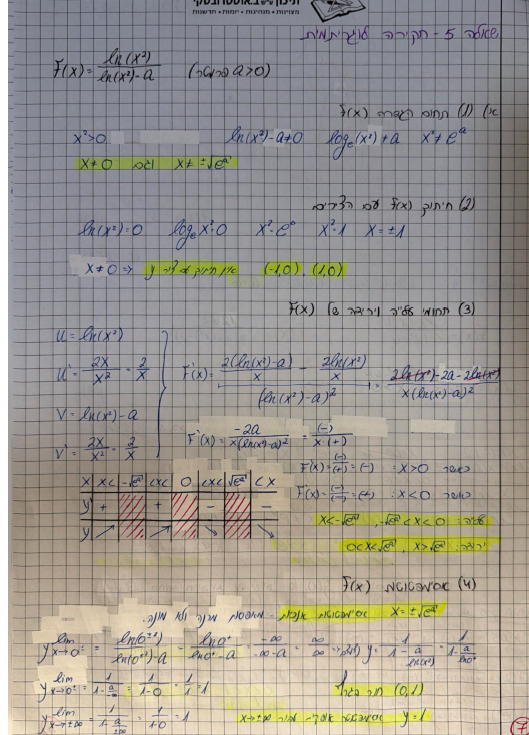 תיכון שז"ב אוסטרובסקי
מצוינות • מנהיגות • יזמות • חדשנות
שאלה 5 - חקירה לוגריתמית
F(x) = ln(x²) / (ln(x²)-a) (a>0 פרמטר)
א) (1) תחום הגדרה F(x)
x²>0 ln(x²)-a≠0 logₑ(x²)≠a x²≠eᵃ
x≠0 וגם x≠±√eᵃ
(2) חיתוך F(x) עם הצירים
ln(x²)=0 logₑx²=0 x²=e⁰ x²=1 x=±1
x≠0 => אין חיתוך עם ציר y (-1,0), (1,0)
(3) תחומי עלייה וירידה של F(x)
U = ln(x²)
U' = 2x/x² = 2/x
V = ln(x²)-a
V' = 2x/x² = 2/x
F'(x) = (2(ln(x²)-a)/x - 2ln(x²)/x) / (ln(x²)-a)² = (2ln(x²)-2a-2ln(x²)) / x(ln(x²)-a)²
F'(x) = -2a / x(ln(x²)-a)² = (-) / x·(+)
כאשר x>0: F'(x) = (-)/(+) = (-)
כאשר x<0: F'(x) = (-)/(-) = (+)
X | x< | -√eᵃ | <x< | 0 | <x< | √eᵃ | <x
y' | + | | + | | - | | -
y | ↗ | | ↗ | | ↘ | | ↘
עלייה: x<-√eᵃ, -√eᵃ<x<0
ירידה: 0<x<√eᵃ, x>√eᵃ
(4) אסימפטוטות F(x)
x=±√eᵃ אסימפטוטות אנכיות - מאפסות מכנה ולא מונה.
y lim x→0± = ln(0±²) / (ln(0±²)-a) = ln0⁺ / (ln0⁺-a) = -∞ / (-∞-a) = ∞/∞ => y = 1 / (1-a/ln(x²)) = 1 / (1-a/ln0⁺)
y lim x→0± = 1 / (1-a/-∞) = 1/(1-0) = 1/1 = 1 (0,1) חור בגרף
y lim x→±∞ = 1 / (1-a/±∞) = 1/(1-0) = 1 y=1 אסימפטוטה אופקית עבור x→±∞
7